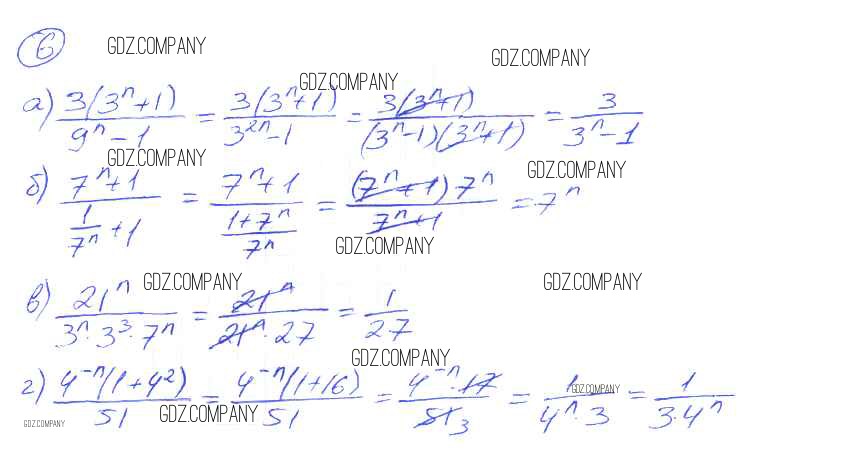 6 GDZ.COMPANY GDZ.COMPANY
GDZ.COMPANY
а) 3(3ⁿ+1)/(9ⁿ-1) = 3(3ⁿ+1)/(3²ⁿ-1) = 3(3ⁿ+1)/((3ⁿ-1)(3ⁿ+1)) = 3/(3ⁿ-1)
GDZ.COMPANY GDZ.COMPANY
б) (7ⁿ+1)/(1/7ⁿ+1) = (7ⁿ+1)/((1+7ⁿ)/7ⁿ) = (7ⁿ+1)7ⁿ/(7ⁿ+1) = 7ⁿ
GDZ.COMPANY
GDZ.COMPANY GDZ.COMPANY
в) 21ⁿ/(3ⁿ·3³·7ⁿ) = 21ⁿ/(21ⁿ·27) = 1/27
GDZ.COMPANY
г) 4⁻ⁿ(1+4²)/51 = 4⁻ⁿ(1+16)/51 = 4⁻ⁿ·17/51 3 = 1/(4ⁿ·3) = 1/(3·4ⁿ)
GDZ.COMPANY
GDZ.COMPANY GDZ.COMPANY